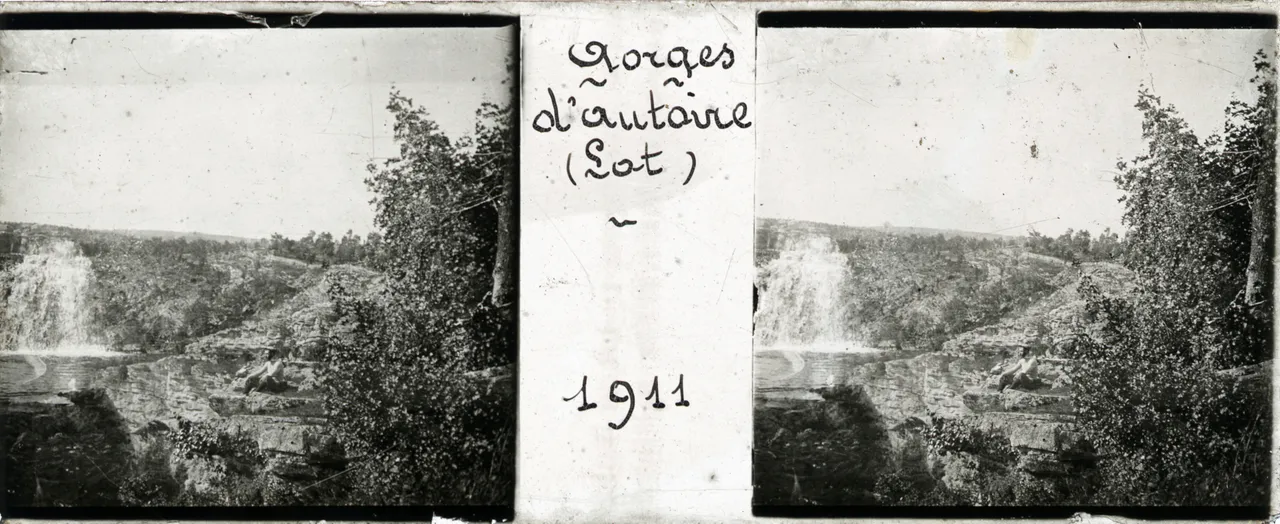 Gorges
d'autoire
(Lot)
~
1911